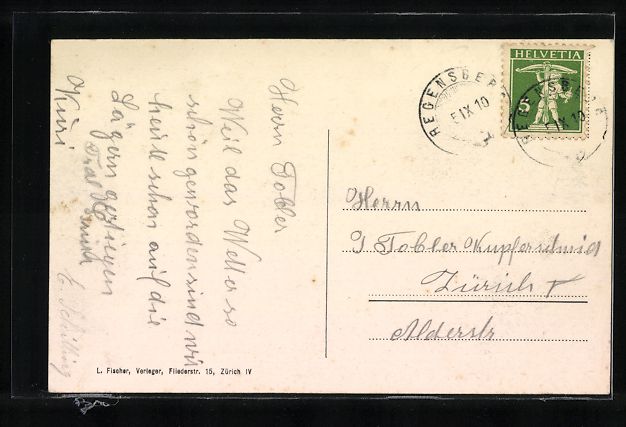 Herrn Tobler
Weil das Wetter so
schön geworden sind wir
heute schon auf die
Lägern gestiegen
L. Fischer, Verleger, Fliederstr. 15, Zürich IV
HELVETIA
5
REGENSBERG
5 IX 10
REGENSBERG
IX 10
Herrn
J Tobler Kupferschmid
Zürich I
Alderstr
E. Schilling